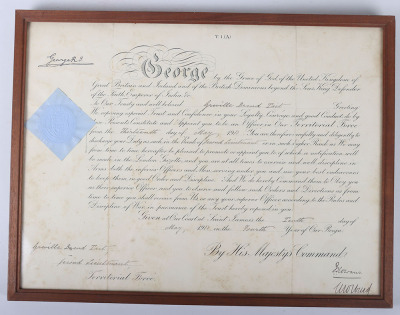 George R.I.
George by the Grace of God of the United Kingdom of
Great Britain and Ireland and of the British Dominions beyond the Seas King, Defender
of the Faith, Emperor of India &c.
To Our Trusty and well beloved Greeting
We reposing especial Trust and Confidence in your Loyalty, Courage, and good Conduct, do by
these Presents Constitute and Appoint you to be an Officer in Our Territorial Force
from the day of May 191 You are therefore carefully and diligently to
discharge your Duty as such in the Rank of Second Lieutenant or in such higher Rank as We may
from time to time hereafter be pleased to promote or appoint you to of which a notification will
be made in the London Gazette, and you are at all times to exercise and well discipline in
Arms both the inferior Officers and Men serving under you and use your best endeavours
to keep them in good Order and Discipline. And We do hereby Command them to Obey you
as their superior Officer, and you to observe and follow such Orders and Directions as from
time to time you shall receive from Us, or any your superior Officer, according to the Rules and
Discipline of War, in pursuance of the Trust hereby reposed in you.
Given at Our Court, at Saint James's the day of
May 191 in the Year of Our Reign
By His Majesty's Command
Second Lieutenant
Territorial Force